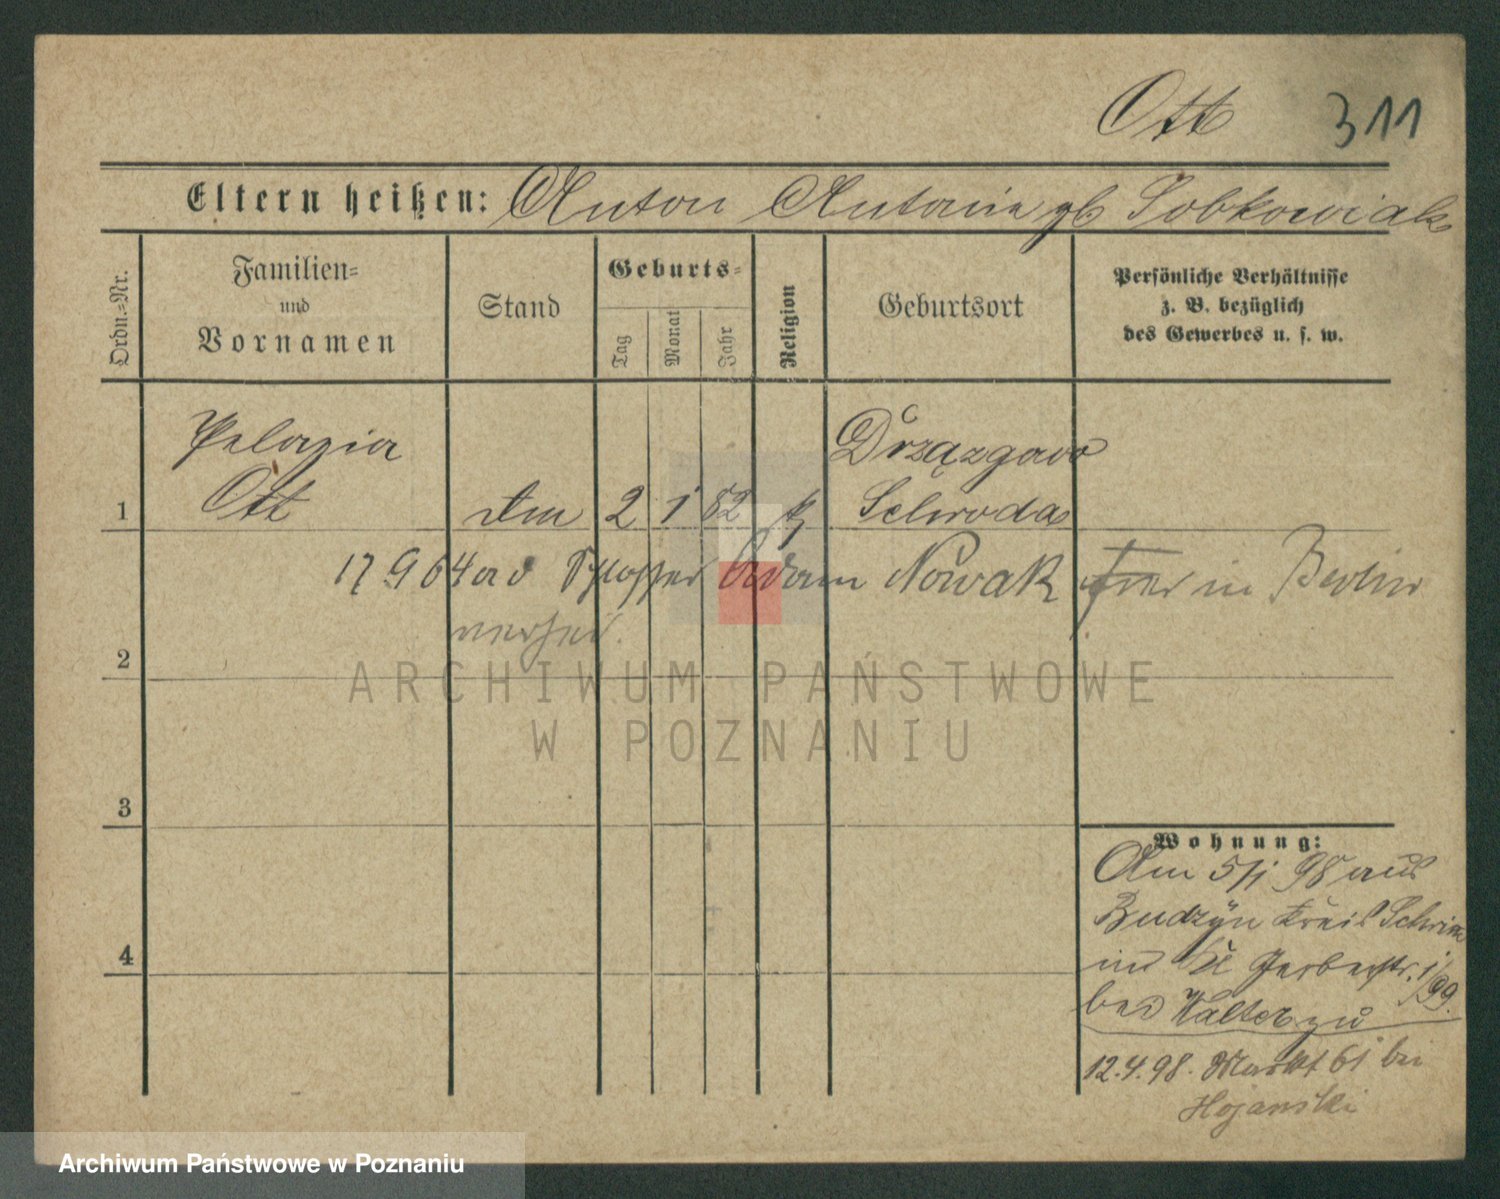 Ott 311
Eltern heißen: Anton Antonie gb Sobkowiak
Ordn.-Nr.
Familien-
und
Vornamen
Stand
Geburts-
Tag
Monat
Jahr
Religion
Geburtsort
Persönliche Verhältnisse
z. B. bezüglich
des Gewerbes u. s. w.
Pelagia
Ott
Drzązgowo
1
2 1 82 k
Schroda
17 9 04 Schlosser Adam Nowak in Berlin
2
3
4
Wohnung:
Am 5/1 98 aus
Budzyn Kreis Schrim
Gerberstr.
bei Walter zu
12.4.98. Markt 61 bei
Hojanski
ARCHIWUM PAŃSTWOWE
W POZNANIU
Archiwum Państwowe w Poznaniu